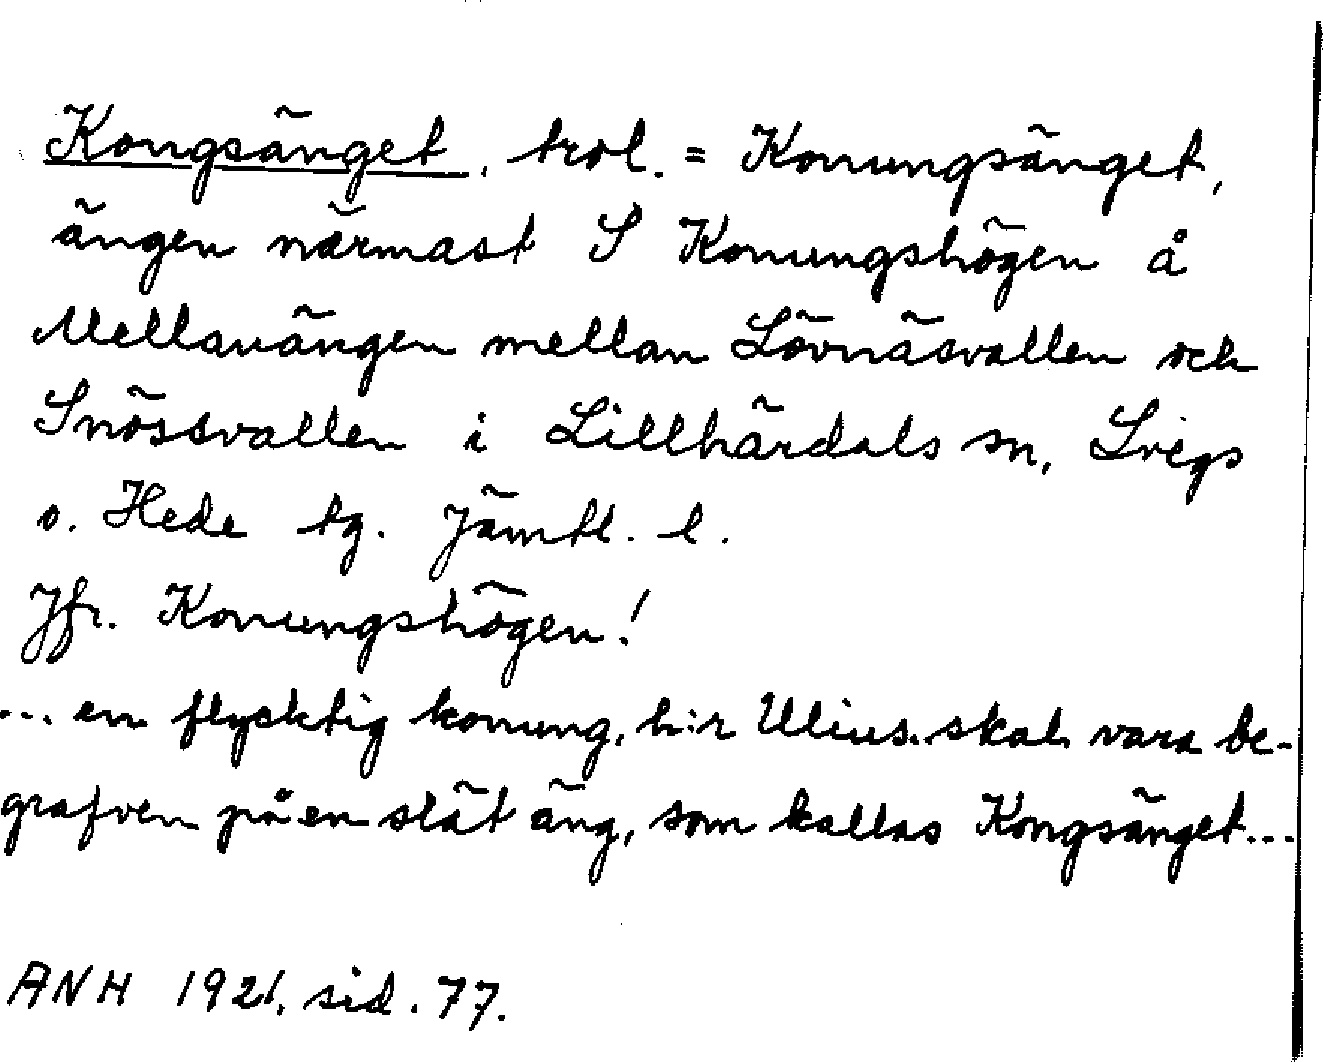 Kongsänget, trol. = Konungsänget,
ängen närmast S Konungshögen å
Mellanängen mellan Lövnäsvallen och
Snössvallen i Lillhärdals sn, Svegs
o. Hede tg. Jämtl. l.
Jfr. Konungshögen!
... en flycktig konung, h:r Ulius. skal vara be-
grafven på en slät äng, som kallas Kongsänget...
ANH 1921, sid. 77.